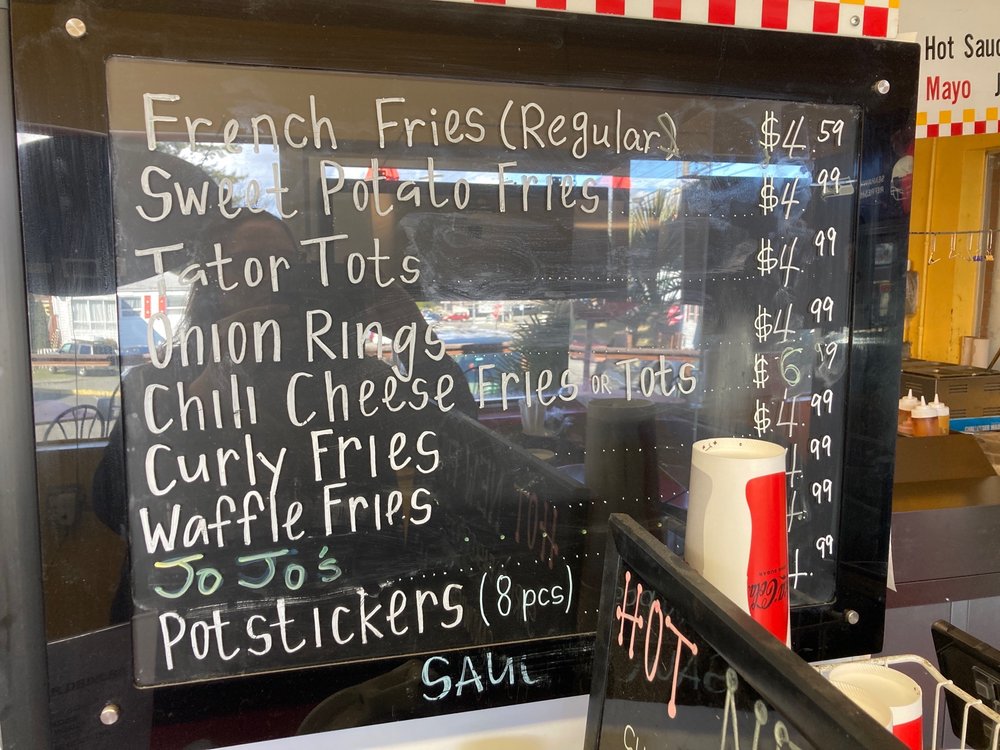 French Fries (Regular) $4.59
Sweet Potato Fries $4.99
Tator Tots $4.99
Onion Rings $4.99
Chili Cheese Fries or Tots $6.99
Curly Fries $4.99
Waffle Fries .99
Jo Jo's .99
Potstickers (8 pcs) .99
HOT
Hot
Mayo